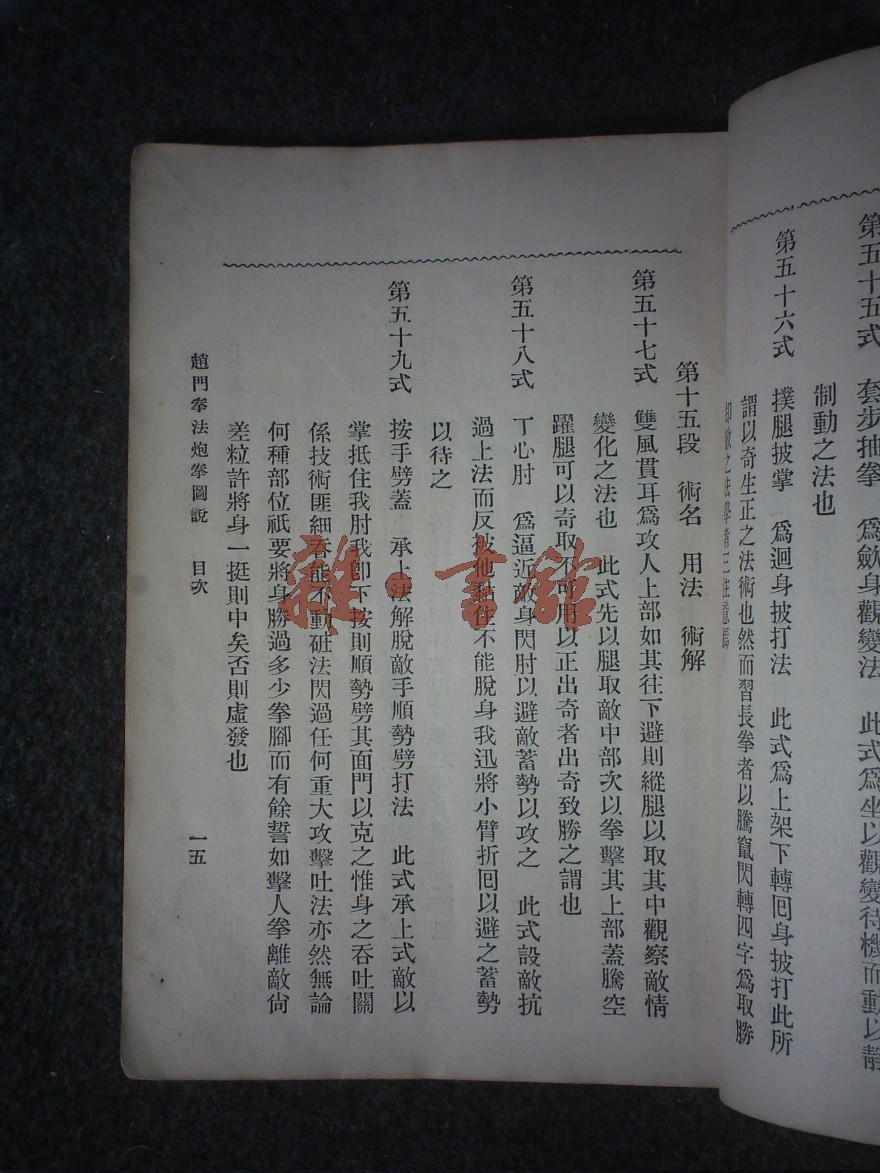 第五十五式　套步抽拳　爲歛身觀變法　此式爲坐以觀變待機而動以靜
制動之法也
第五十六式　撲腿披掌　爲迴身披打法　此式爲上架下轉囘身披打此所
謂以奇生正之法術也然而習長拳者以騰竄閃轉四字爲取勝
却敵之法學者三注意焉
第十五段　術名　用法　術解
第五十七式　雙風貫耳爲攻人上部如其往下避則縱腿以取其中觀察敵情
變化之法也　此式先以腿取敵中部次以拳擊其上部蓋騰空
躍腿可以奇取不可用以正出奇者出奇致勝之謂也
第五十八式　丁心肘　爲逼近敵身閃肘以避敵蓄勢以攻之　此式設敵抗
過上法而反被他黏住不能脫身我迅將小臂折囘以避之蓄勢
以待之
第五十九式　按手劈蓋　承上法解脫敵手順勢劈打法　此式承上式敵以
掌抵住我肘我卽下按則順勢劈其面門以克之惟身之吞吐關
係技術匪細吞能不動砠法閃過任何重大攻擊吐法亦然無論
何種部位祇要將身勝過多少拳腳而有餘誓如擊人拳離敵尙
差粒許將身一挺則中矣否則虛發也
趙門拳法炮拳圖說　目次
一五
雜·書館